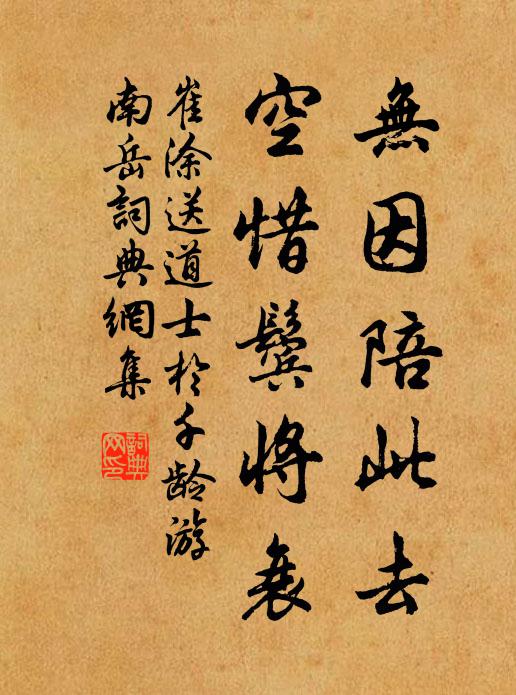 無因陪此去
空惜鬢將衰
崔涂送道士於千齡游
南岳詞典網集
詞典网印